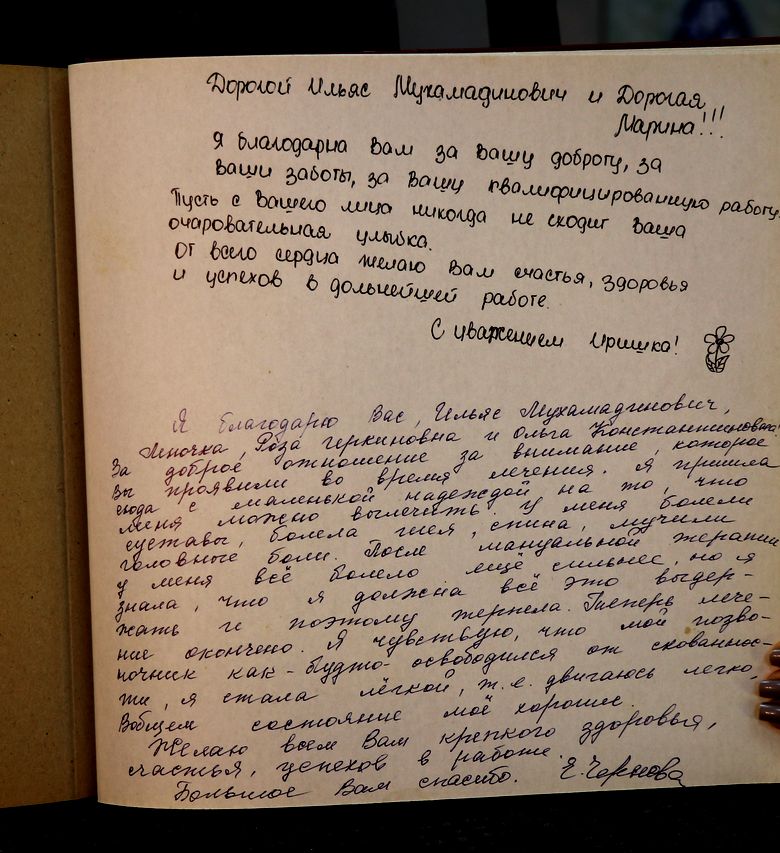 Дорогой Ильяс Мухамадинович и Дорогая
Марина!!!
Я благодарна вам за вашу доброту, за
ваши заботы, за вашу квалифицированную работу.
Пусть с вашего лица никогда не сходит ваша
очаровательная улыбка.
От всего сердца желаю вам счастья, здоровья
и успехов в дольнейшей работе.
С уважением Иришка!
Я благодарю Вас, Ильяс Мухамадинович,
Леночка, Роза Геркиновна и Ольга Константиновна!
За доброе отношение за внимание, которое
Вы проявили во время лечения. Я пришла
сюда с маленькой надеждой на то, что
меня можно вылечить. У меня болели
суставы, болела шея, спина, мучили
головные боли. После мануальной терапии
у меня всё болело ещё сильнее, но я
знала, что я должна всё это выдер-
жать и поэтому терпела. Теперь лече-
ние окончено. Я чувствую, что мой позво-
ночник как-будто освободился от скованнос-
ти, я стала лёгкой, т.е. двигаюсь легко,
Вобщем состояние моё хорошее.
Желаю всем Вам крепкого здоровья,
счастья, успехов в работе.
Большое Вам спасибо. Е. Чернова